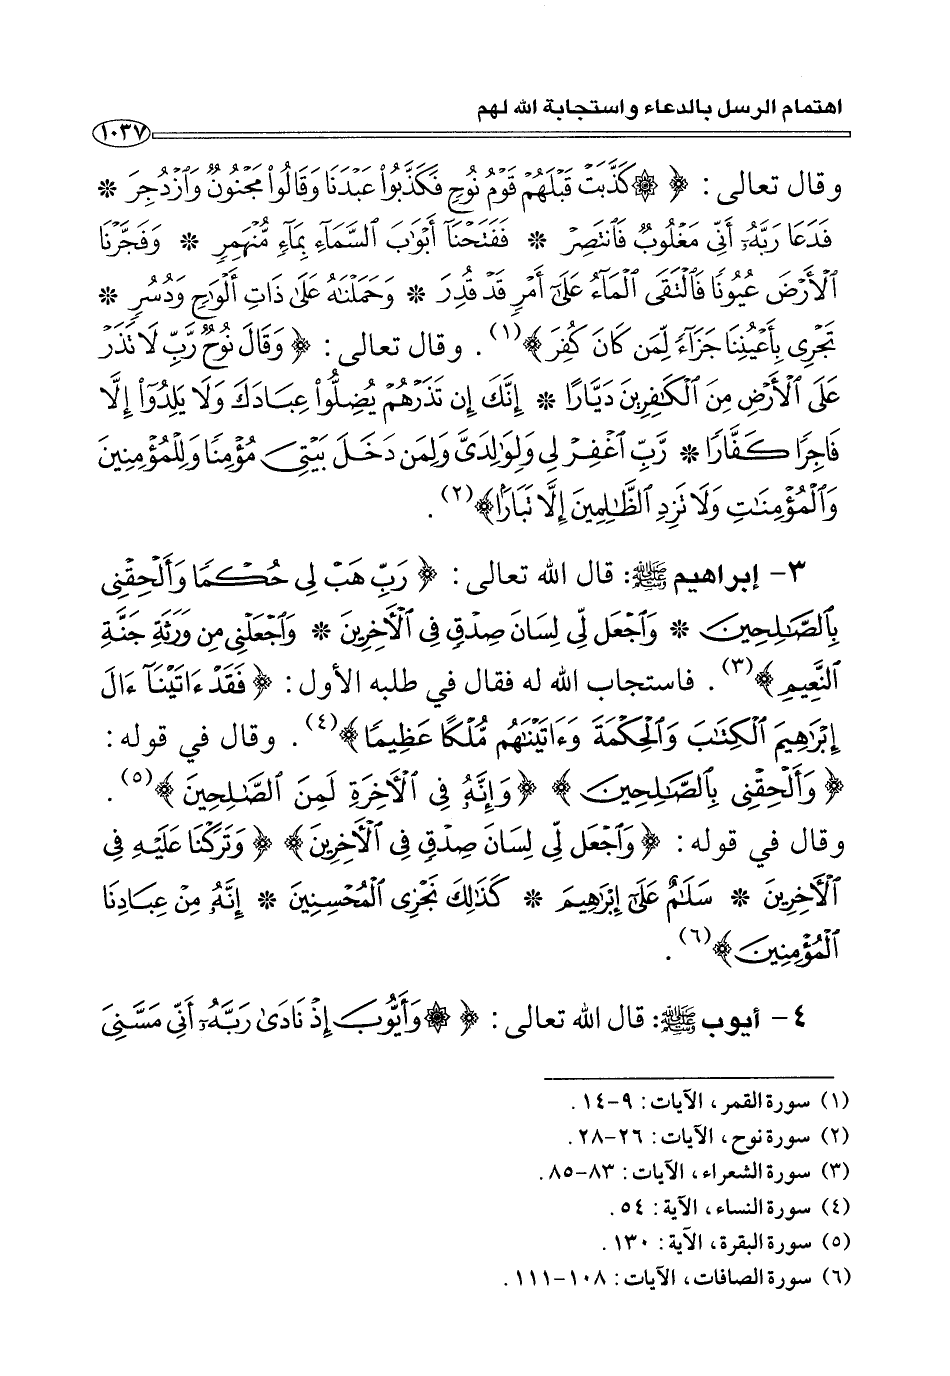 اهتمام الرسل بالدعاء واستجابة الله لهم
١٠٣٧
وقال تعالى: ﴿ ۞ كَذَّبَتْ قَبْلَهُمْ قَوْمُ نُوحٍ فَكَذَّبُوا۟ عَبْدَنَا وَقَالُوا۟ مَجْنُونٌ وَٱزْدُجِرَ *
فَدَعَا رَبَّهُۥٓ أَنِّى مَغْلُوبٌ فَٱنتَصِرْ * فَفَتَحْنَآ أَبْوَٰبَ ٱلسَّمَآءِ بِمَآءٍ مُّنْهَمِرٍ * وَفَجَّرْنَا
ٱلْأَرْضَ عُيُونًا فَٱلْتَقَى ٱلْمَآءُ عَلَىٰٓ أَمْرٍ قَدْ قُدِرَ * وَحَمَلْنَٰهُ عَلَىٰ ذَاتِ أَلْوَٰحٍ وَدُسُرٍ *
تَجْرِى بِأَعْيُنِنَا جَزَآءً لِّمَن كَانَ كُفِرَ ﴾(١). وقال تعالى: ﴿ وَقَالَ نُوحٌ رَّبِّ لَا تَذَرْ
عَلَى ٱلْأَرْضِ مِنَ ٱلْكَٰفِرِينَ دَيَّارًا * إِنَّكَ إِن تَذَرْهُمْ يُضِلُّوا۟ عِبَادَكَ وَلَا يَلِدُوٓا۟ إِلَّا
فَاجِرًا كَفَّارًا * رَّبِّ ٱغْفِرْ لِى وَلِوَٰلِدَىَّ وَلِمَن دَخَلَ بَيْتِىَ مُؤْمِنًا وَلِلْمُؤْمِنِينَ
وَٱلْمُؤْمِنَٰتِ وَلَا تَزِدِ ٱلظَّٰلِمِينَ إِلَّا تَبَارًۢا ﴾(٢).
٣- إبراهيم ﷺ: قال الله تعالى: ﴿ رَبِّ هَبْ لِى حُكْمًا وَأَلْحِقْنِى
بِٱلصَّٰلِحِينَ * وَٱجْعَل لِّى لِسَانَ صِدْقٍ فِى ٱلْأَخِرِينَ * وَٱجْعَلْنِى مِن وَرَثَةِ جَنَّةِ
ٱلنَّعِيمِ ﴾(٣). فاستجاب الله له فقال في طلبه الأول: ﴿ فَقَدْ ءَاتَيْنَآ ءَالَ
إِبْرَٰهِيمَ ٱلْكِتَٰبَ وَٱلْحِكْمَةَ وَءَاتَيْنَٰهُم مُّلْكًا عَظِيمًا ﴾(٤). وقال في قوله:
﴿ وَأَلْحِقْنِى بِٱلصَّٰلِحِينَ ﴾ ﴿ وَإِنَّهُۥ فِى ٱلْأَخِرَةِ لَمِنَ ٱلصَّٰلِحِينَ ﴾(٥).
وقال في قوله: ﴿ وَٱجْعَل لِّى لِسَانَ صِدْقٍ فِى ٱلْأَخِرِينَ ﴾ ﴿ وَتَرَكْنَا عَلَيْهِ فِى
ٱلْأَخِرِينَ * سَلَٰمٌ عَلَىٰٓ إِبْرَٰهِيمَ * كَذَٰلِكَ نَجْزِى ٱلْمُحْسِنِينَ * إِنَّهُۥ مِنْ عِبَادِنَا
ٱلْمُؤْمِنِينَ ﴾(٦).
٤- أيوب ﷺ: قال الله تعالى: ﴿ ۞ وَأَيُّوبَ إِذْ نَادَىٰ رَبَّهُۥٓ أَنِّى مَسَّنِىَ
(١) سورة القمر، الآيات: ٩-١٤.
(٢) سورة نوح، الآيات: ٢٦-٢٨.
(٣) سورة الشعراء، الآيات: ٨٣-٨٥.
(٤) سورة النساء، الآية: ٥٤.
(٥) سورة البقرة، الآية: ١٣٠.
(٦) سورة الصافات، الآيات: ١٠٨-١١١.